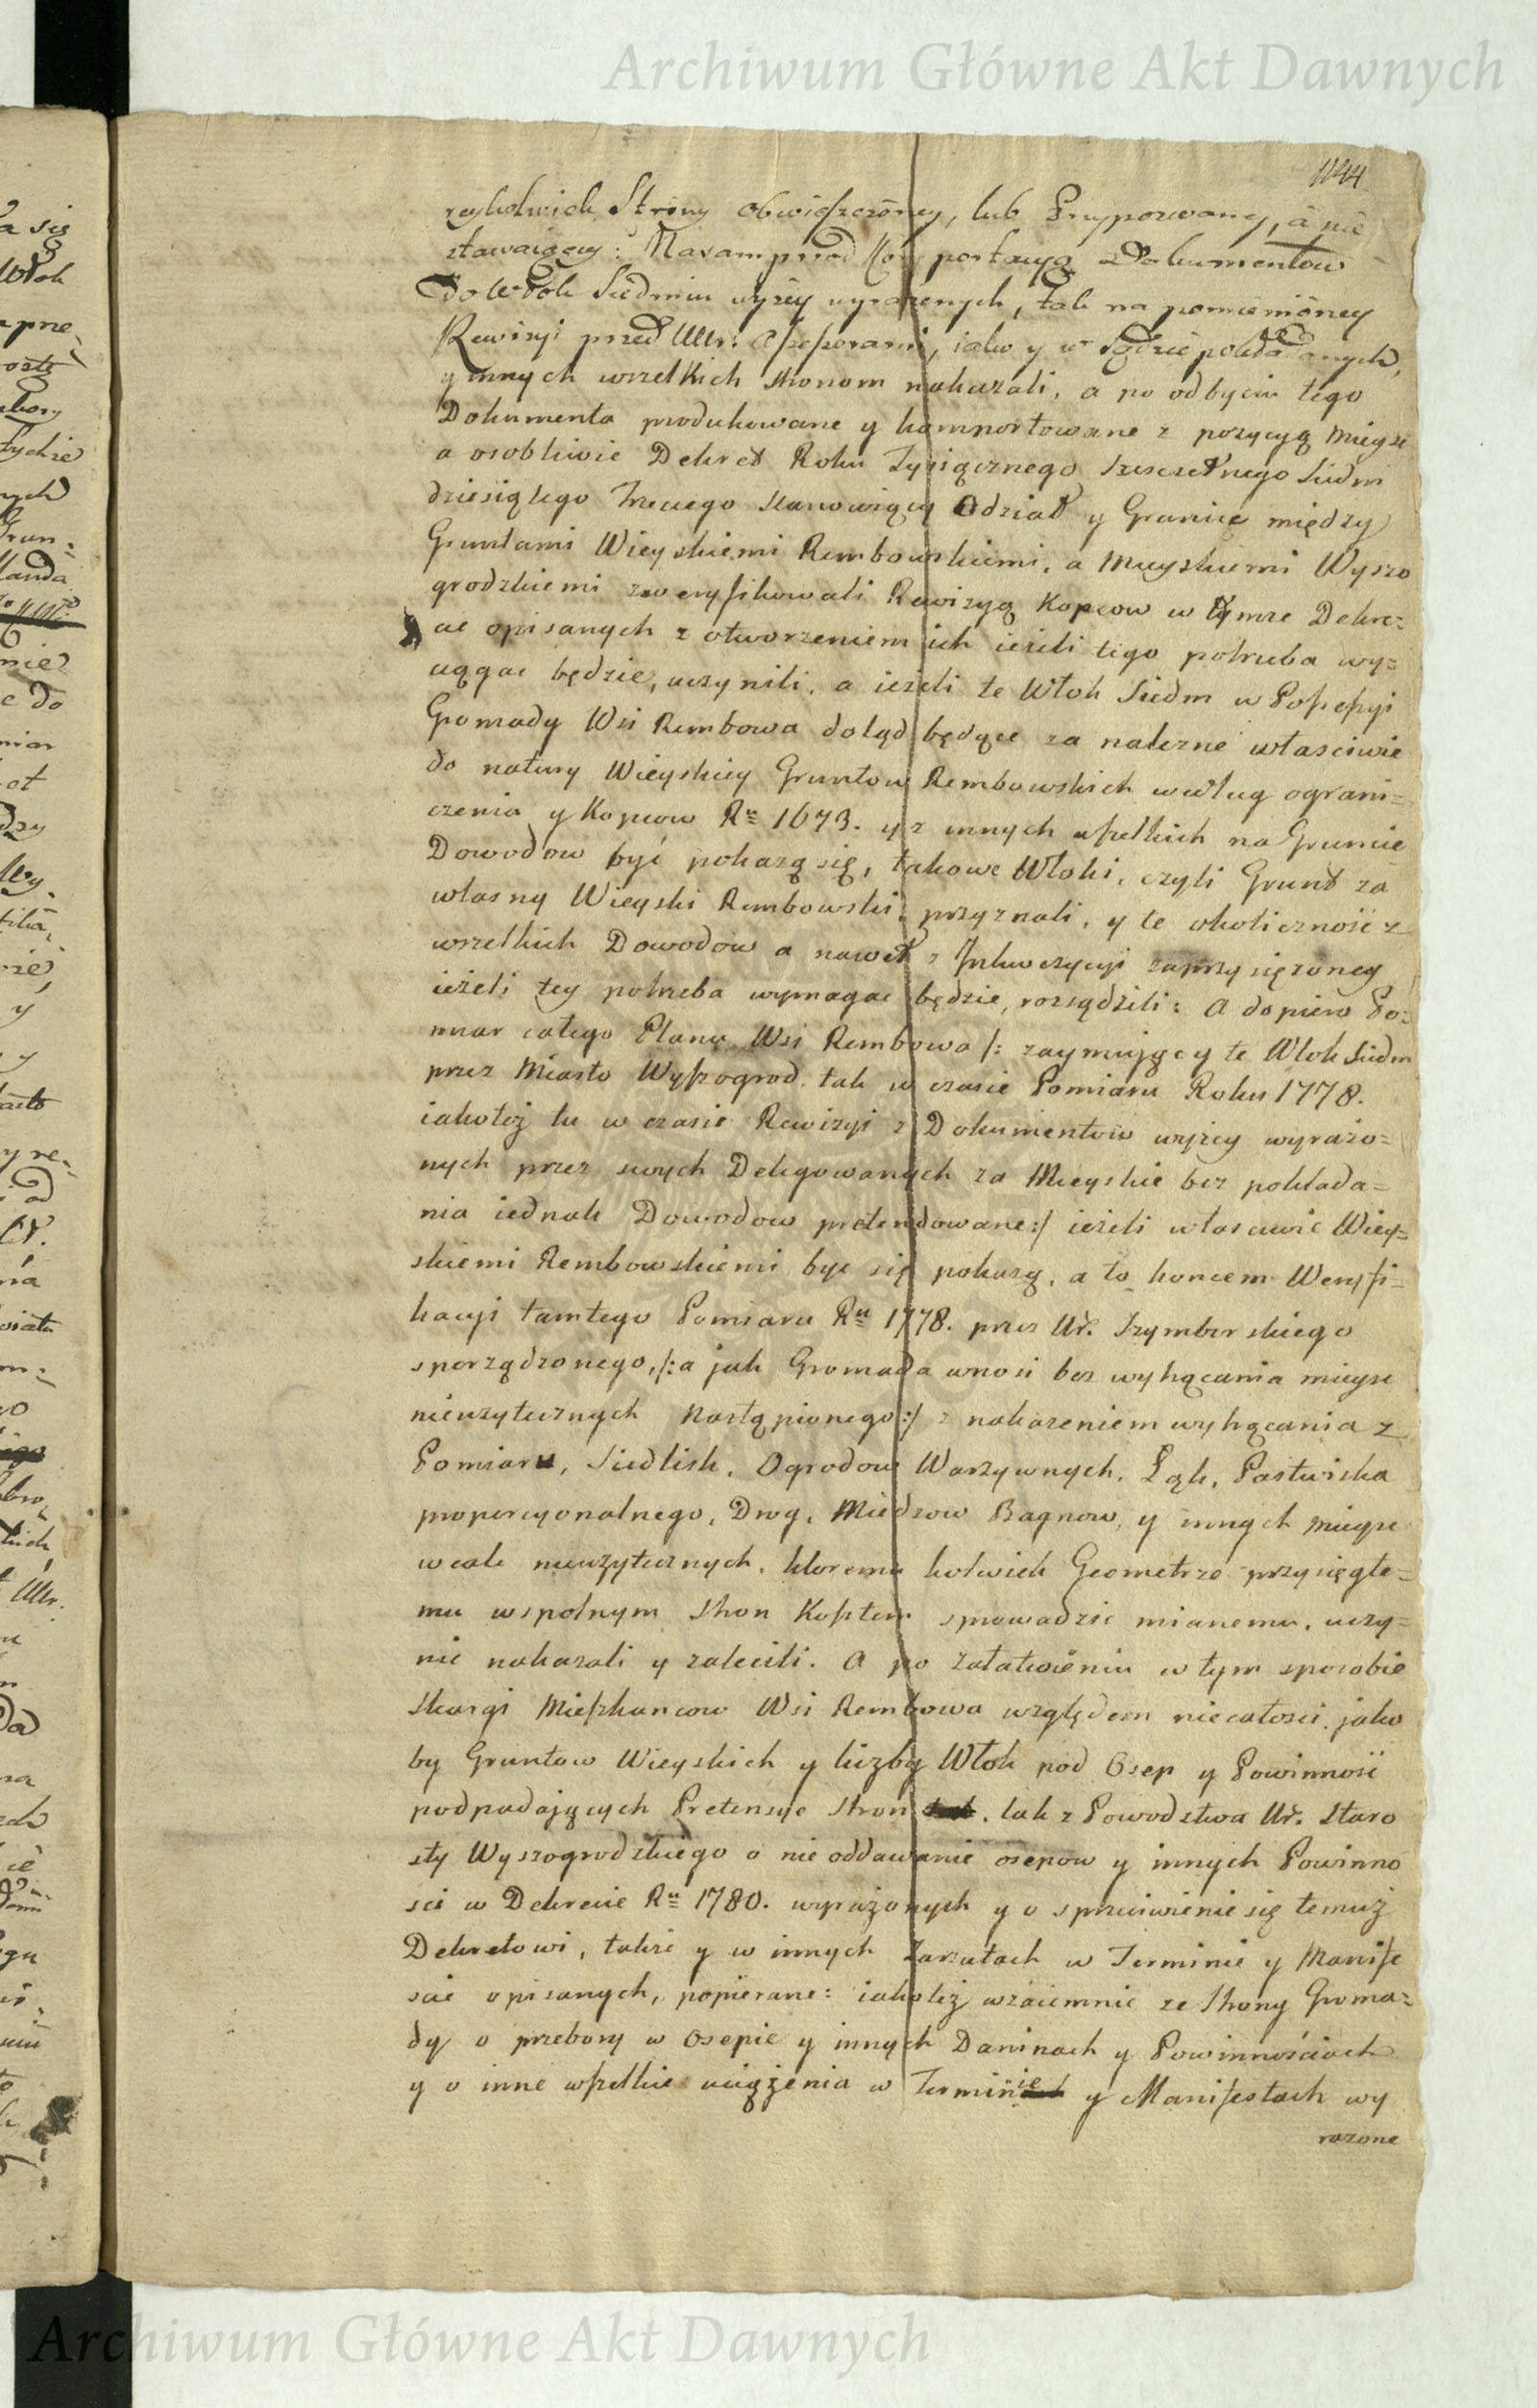 Archiwum Główne Akt Dawnych
1044
reykolwiek Strony obwieszczoney, lub Przypozwaney, a nie
stawaiącey: Naramprzod Komportacyą Dokumentow
Do Włok Siedmiu wyżey wyrażonych, tak na pomienioney
Rewizyi przed Ur: Assessorami, iako y w Sądzie pokładanych,
y innych wszelkich stronom nakazali, a po odbyciu tego
Dokumenta produkowane y komportowane z pozycyą mieysc
a osobliwie Dekret Roku Tysiącznego Szescsetnego Siedm
dziesiątego Trzeciego stanowiący Odział y Granice między
Gruntami Wieyskiemi Rembowskiemi, a Mieyskiemi Wyszo
grodzkiemi zweryfikowali Rewizyą Kopcow w tymze Dekre=
cie opisanych z otworzeniem ich ieżeli tego potrzeba wy=
ciągac będzie, uczynili, a ieżeli te Włok Siedm w Possessyi
Gromady Wsi Rembowa dotąd będące za nalezne własciwie
do natury Wieyskiey Gruntow Rembowskich według ograni=
czenia y Kopcow Ru 1673. y z innych wszelkich na Gruncie
Dowodow być pokazą się, takowe Włoki, czyli Grunt za
własny Wieyski Rembowski przyznali, y te okolicznosc z
wszelkich Dowodow a nawet z Inkwizycyi zaprzysięzoney
ieżeli tey potrzeba wymagac będzie, rozsądzili: A dopiero Po=
miar całego Planu Wsi Rembowa /: zaymujący te Włok Siedm
przez Miasto Wyszogrod tak w czasie Pomiaru Roku 1778.
iakoteż tu w czasie Rewizyi z Dokumentow wyżey wyrażo=
nych przez swych Delegowanych za Mieyskie bez pokłada=
nia iednak Dowodow pretendowane:/ ieżeli własciwie Wiey=
skiemi Rembowskiemi być się pokazą, a to koncem Weryfi=
kacyi tamtego Pomiaru Ru 1778. przez Ur. Szymborskiego
sporządzonego, /: a jak Gromada wnosi bez wyłącania mieysc
nieuzytecznych nastąpionego:/ z nakazeniem wyłącania z
Pomiaru, Siedlisk, Ogrodow Warzywnych, Łąk, Pastwiska
proporcyonalnego, Drog, Miedzow Bagnow, y innych mieysc
wcale nieuzytecznych, ktoremu kolwiek Geometrze przysięgłe=
mu wspolnym stron Kosztem sprowadzic mianemu, uczy=
nic nakazali y zalecili. A po załatwieniu w tym sposobie
skargi Mieszkancow Wsi Rembowa względem niecałosci jako
by Gruntow Wieyskich y liczby Włok pod Osep y Powinnosc
podpadających Pretensye stron, tak z Powodztwa Ur. Staro
sty Wyszogrodzkiego o nie oddawanie osepow y innych Powinno
sci w Dekrecie Ru 1780. wyrażonych y o sprzeciwienie się temuż
Dekretowi, także y w innych Zarzutach w Terminie y Manife
scie opisanych, popierane: iakoteż wzaiemnie ze Strony Groma=
dy o przebory w Osepie y innych Daninach y Powinnościach
y o inne wszelkie uciążenia w Terminie y Manifestach wy
razone
Archiwum Główne Akt Dawnych